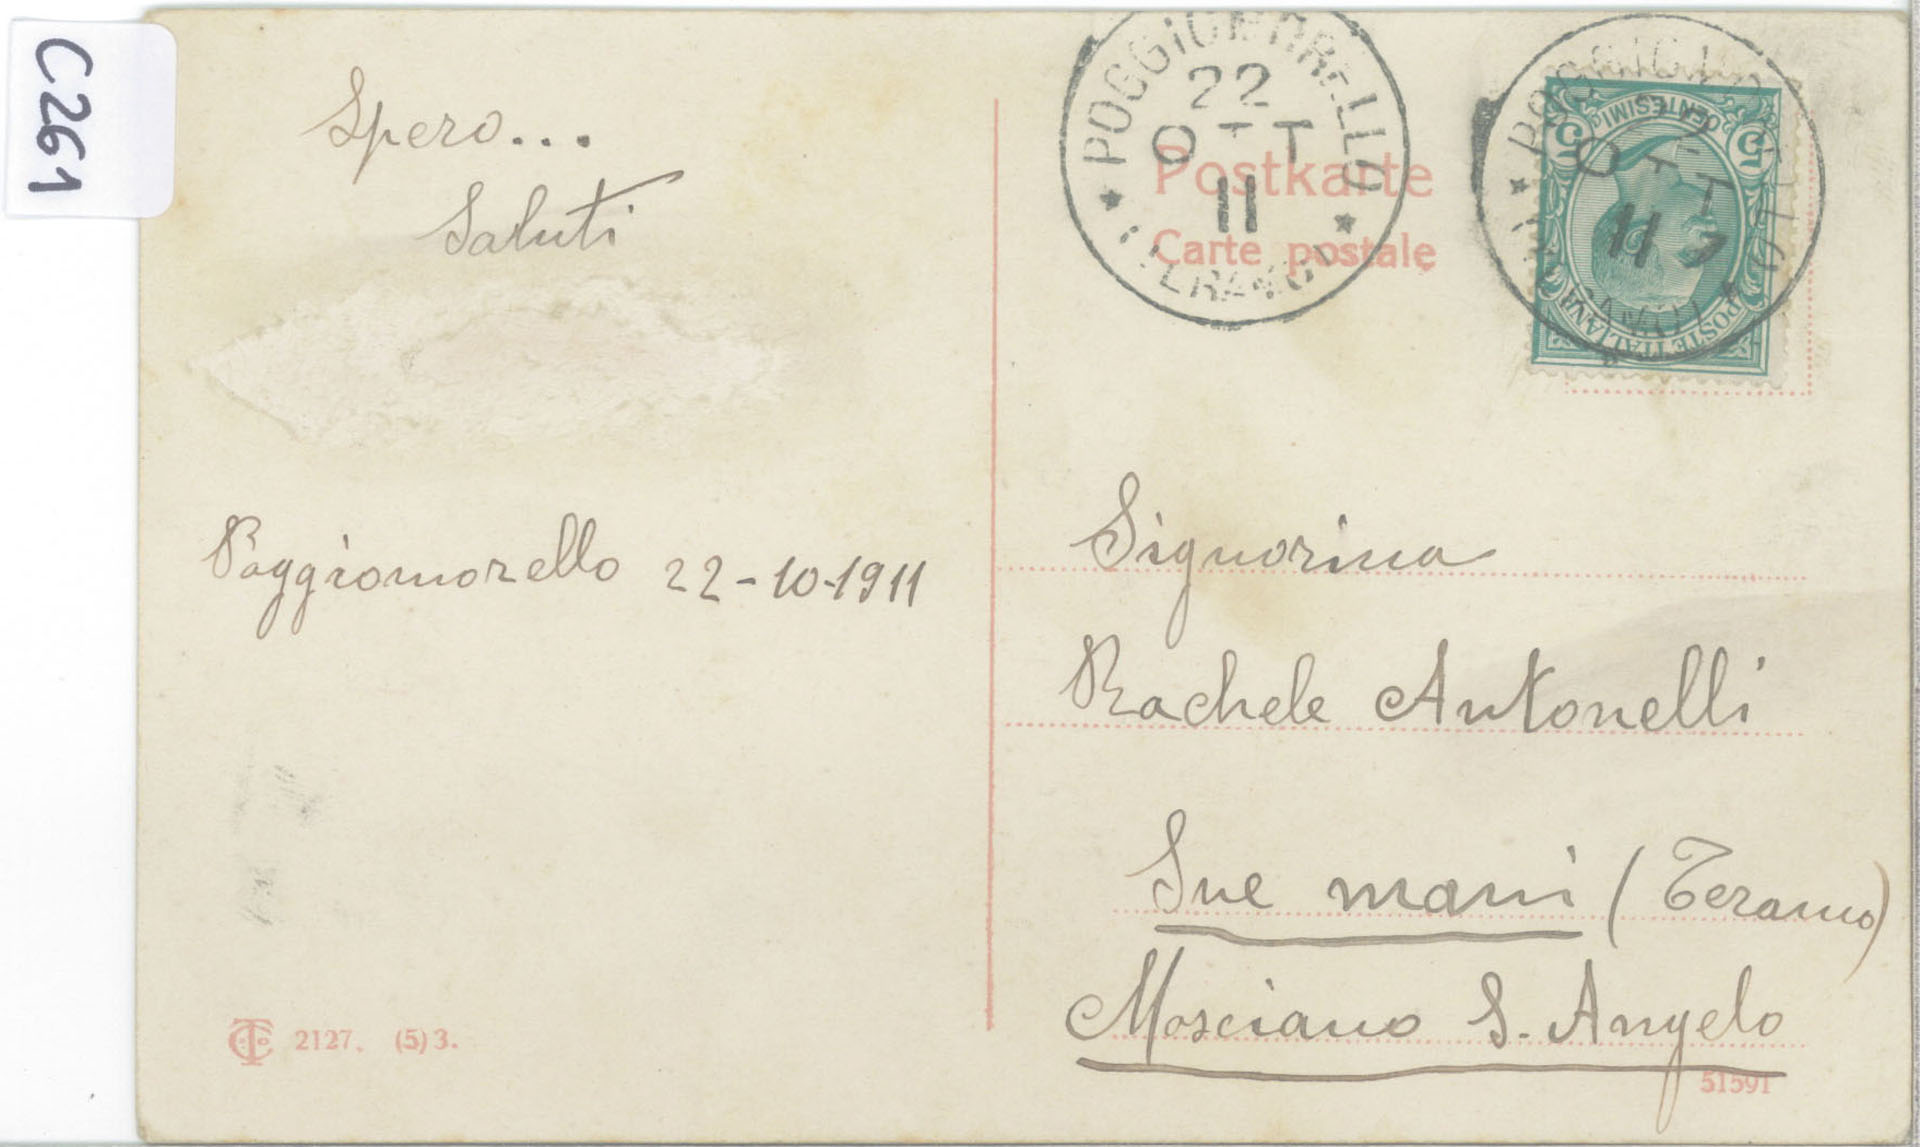 C261
Spero...
Saluti
Poggiomorello 22-10-1911
2127. (5) 3.
POGGIOMORELLO
22
OTT
11
Postkarte
Carte postale
CENTESIMI
5 5
POSTE ITALIANE
OTT
11
Signorina
Rachele Antonelli
Sue mani (Teramo)
Mosciano S. Angelo
51591